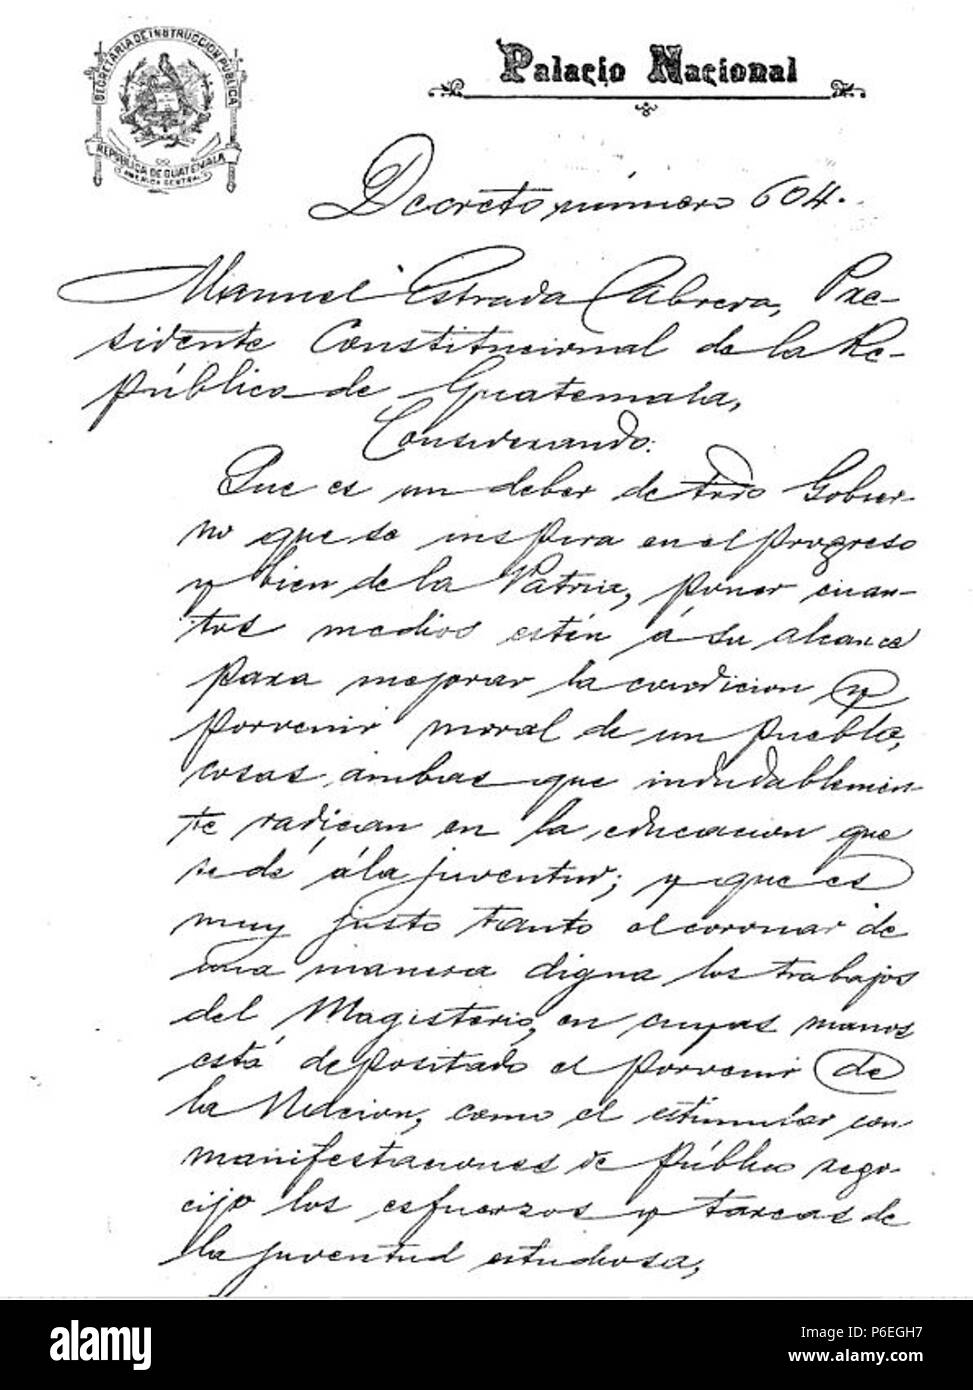 SECRETARIA DE INSTRUCCION PUBLICA
REPUBLICA DE GUATEMALA
AMERICA CENTRAL
Palacio Nacional
Decreto número 604.
Manuel Estrada Cabrera, Pre-
sidente Constitucional de la Re-
pública de Guatemala,
Considerando:
Que es un deber de todo Gobier-
no que se inspira en el progreso
y bien de la Patria, poner cuan-
tos medios estén á su alcance
para mejorar la condicion y
porvenir moral de un pueblo,
cosas ambas que indudablemen-
te radican en la educacion que
se dé á la juventud; y que es
muy justo tanto el coronar de
una manera digna los trabajos
del Magisterio, en cuyas manos
está depositado el porvenir de
la Nacion, como el estimular con
manifestaciones de público rego-
cijo los esfuerzos y tareas de
la juventud estudiosa,
alamy
Image ID: P6EGH7
www.alamy.com